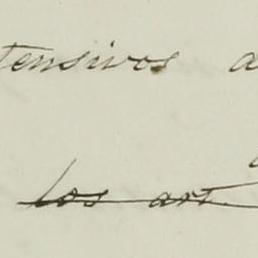 tensivos a
los art